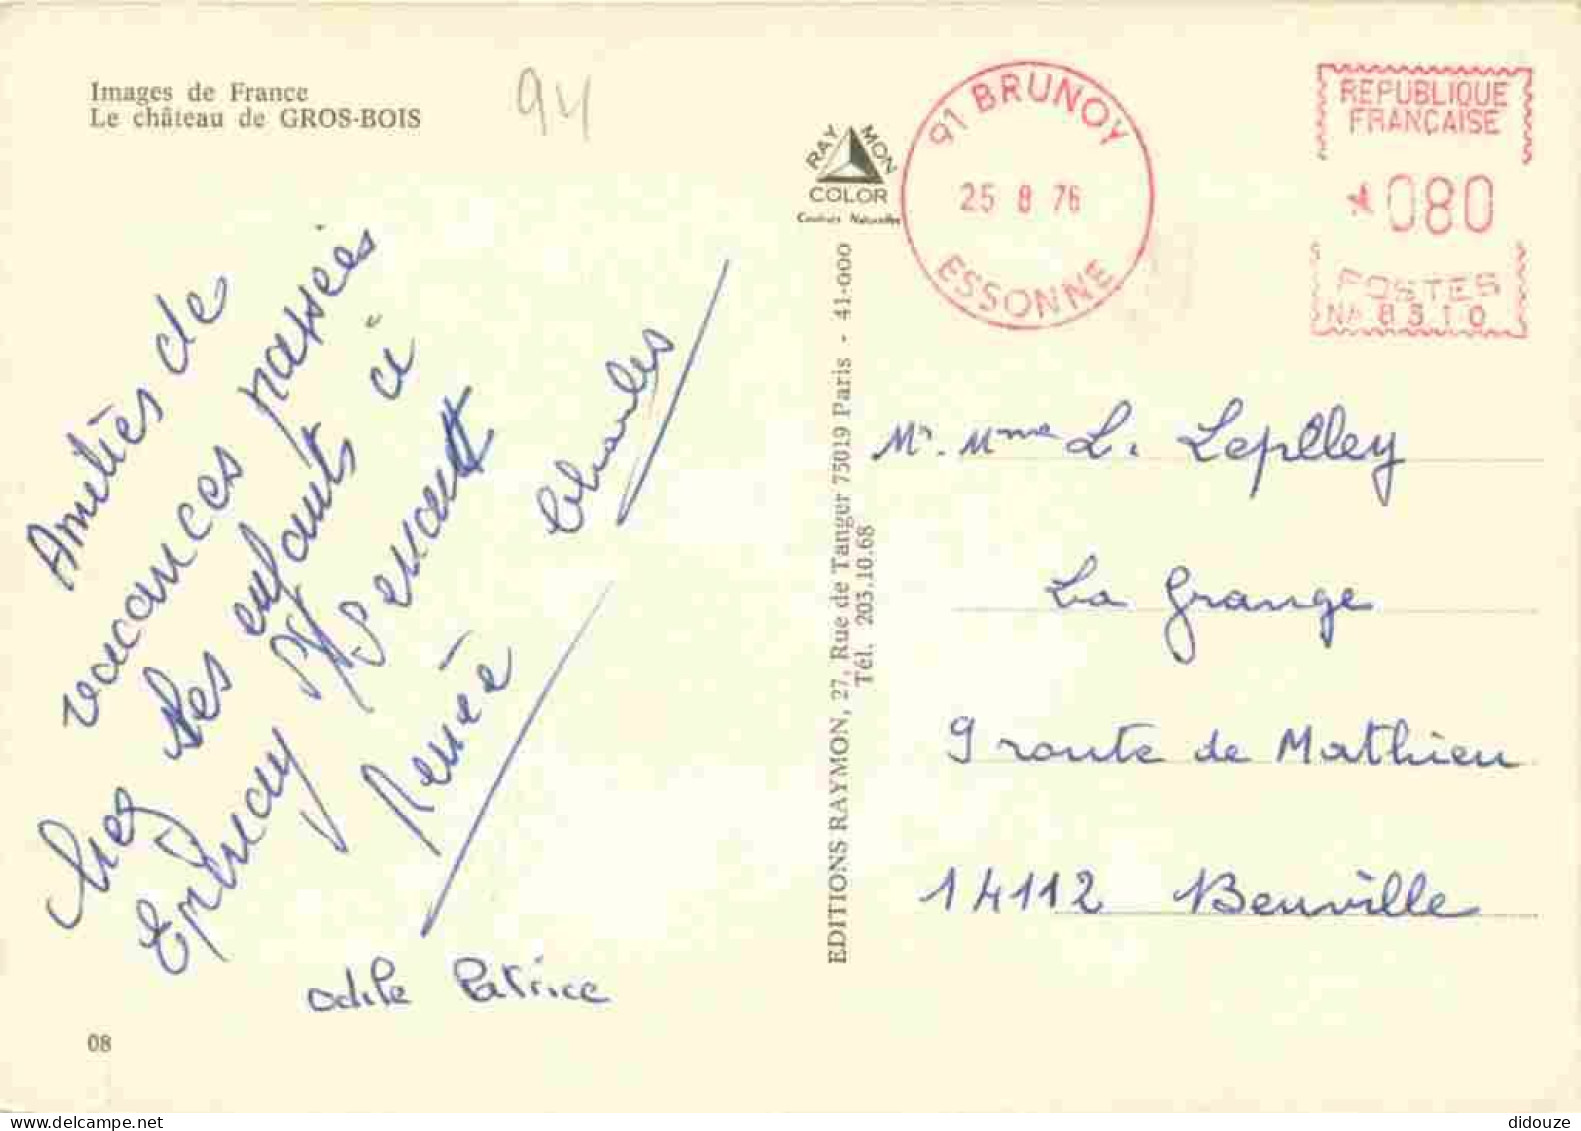 Images de France
Le château de GROS-BOIS
94
RAYMON
COLOR
Couleurs Naturelles
91 BRUNOY
25 8 76
ESSONNE
REPUBLIQUE
FRANÇAISE
080
POSTES
NA 8310
Amitiés de
vacances passées
chez les enfants à
Epinay
Renée Charles
odile Patrice
EDITIONS RAYMON, 27, Rue de Tanger 75019 Paris - 41-000
Tél. 203.10.68
Mr. Mme L. Leplley
La Grange
9 route de Mathieu
14112 Beuville
08
didouze